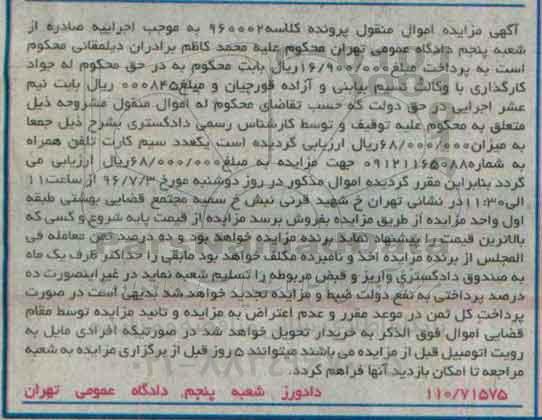 آگهی مزایده اموال منقول پرونده کلاسه ۹۶۰۰۰۲ به موجب اجراییه صادره از
شعبه پنجم دادگاه عمومی تهران محکوم علیه محمد کاظم برادران دیلمقانی محکوم
است به پرداخت مبلغ ۱۶/۹۰۰/۰۰۰ ریال بابت محکوم به در حق محکوم له جواد
کارگذاری با وکالت نسیم بیابنی و آزاده قورچیان و مبلغ ۸۴۵۰۰۰ ریال بابت نیم
عشر اجرایی در حق دولت که حسب تقاضای محکوم له اموال منقول مشروحه ذیل
متعلق به محکوم علیه توقیف و توسط کارشناس رسمی دادگستری بشرح ذیل جمعا
به میزان ۶۸/۰۰۰/۰۰۰ ریال ارزیابی گردیده است یکعدد سیم کارت تلفن همراه
به شماره ۰۹۱۲۱۱۶۵۰۸۸ جهت مزایده به مبلغ ۶۸/۰۰۰/۰۰۰ ریال ارزیابی می
گردد بنابراین مقرر گردیده اموال مذکور در روز دوشنبه مورخ ۹۶/۷/۳ از ساعت ۱۱
الی ۱۱:۳۰ در نشانی تهران خ شهید قرنی نبش خ سمیه مجتمع قضایی بهشتی طبقه
اول واحد مزایده از طریق مزایده بفروش برسد مزایده از قیمت پایه شروع و کسی که
بالاترین قیمت را پیشنهاد نماید برنده مزایده خواهد بود و ده درصد ثمن معامله فی
المجلس از برنده مزایده اخذ و نامبرده مکلف خواهد بود مابقی را حداکثر ظرف یک ماه
به صندوق دادگستری واریز و قبض مربوطه را تسلیم شعبه نماید در غیر اینصورت ده
درصد پرداختی به نفع دولت ضبط و مزایده تجدید خواهد شد بدیهی است در صورت
پرداخت کل ثمن در موعد مقرر و عدم اعتراض به مزایده و تائید مزایده توسط مقام
قضایی اموال فوق الذکر به خریدار تحویل خواهد شد در صورتیکه افرادی مایل به
رویت اتومبیل قبل از مزایده می باشند میتوانند ۵ روز قبل از برگزاری مزایده به شعبه
مراجعه تا امکان بازدید آنها فراهم گردد.
۱۱۰/۷۱۵۷۵ دادورز شعبه پنجم دادگاه عمومی تهران